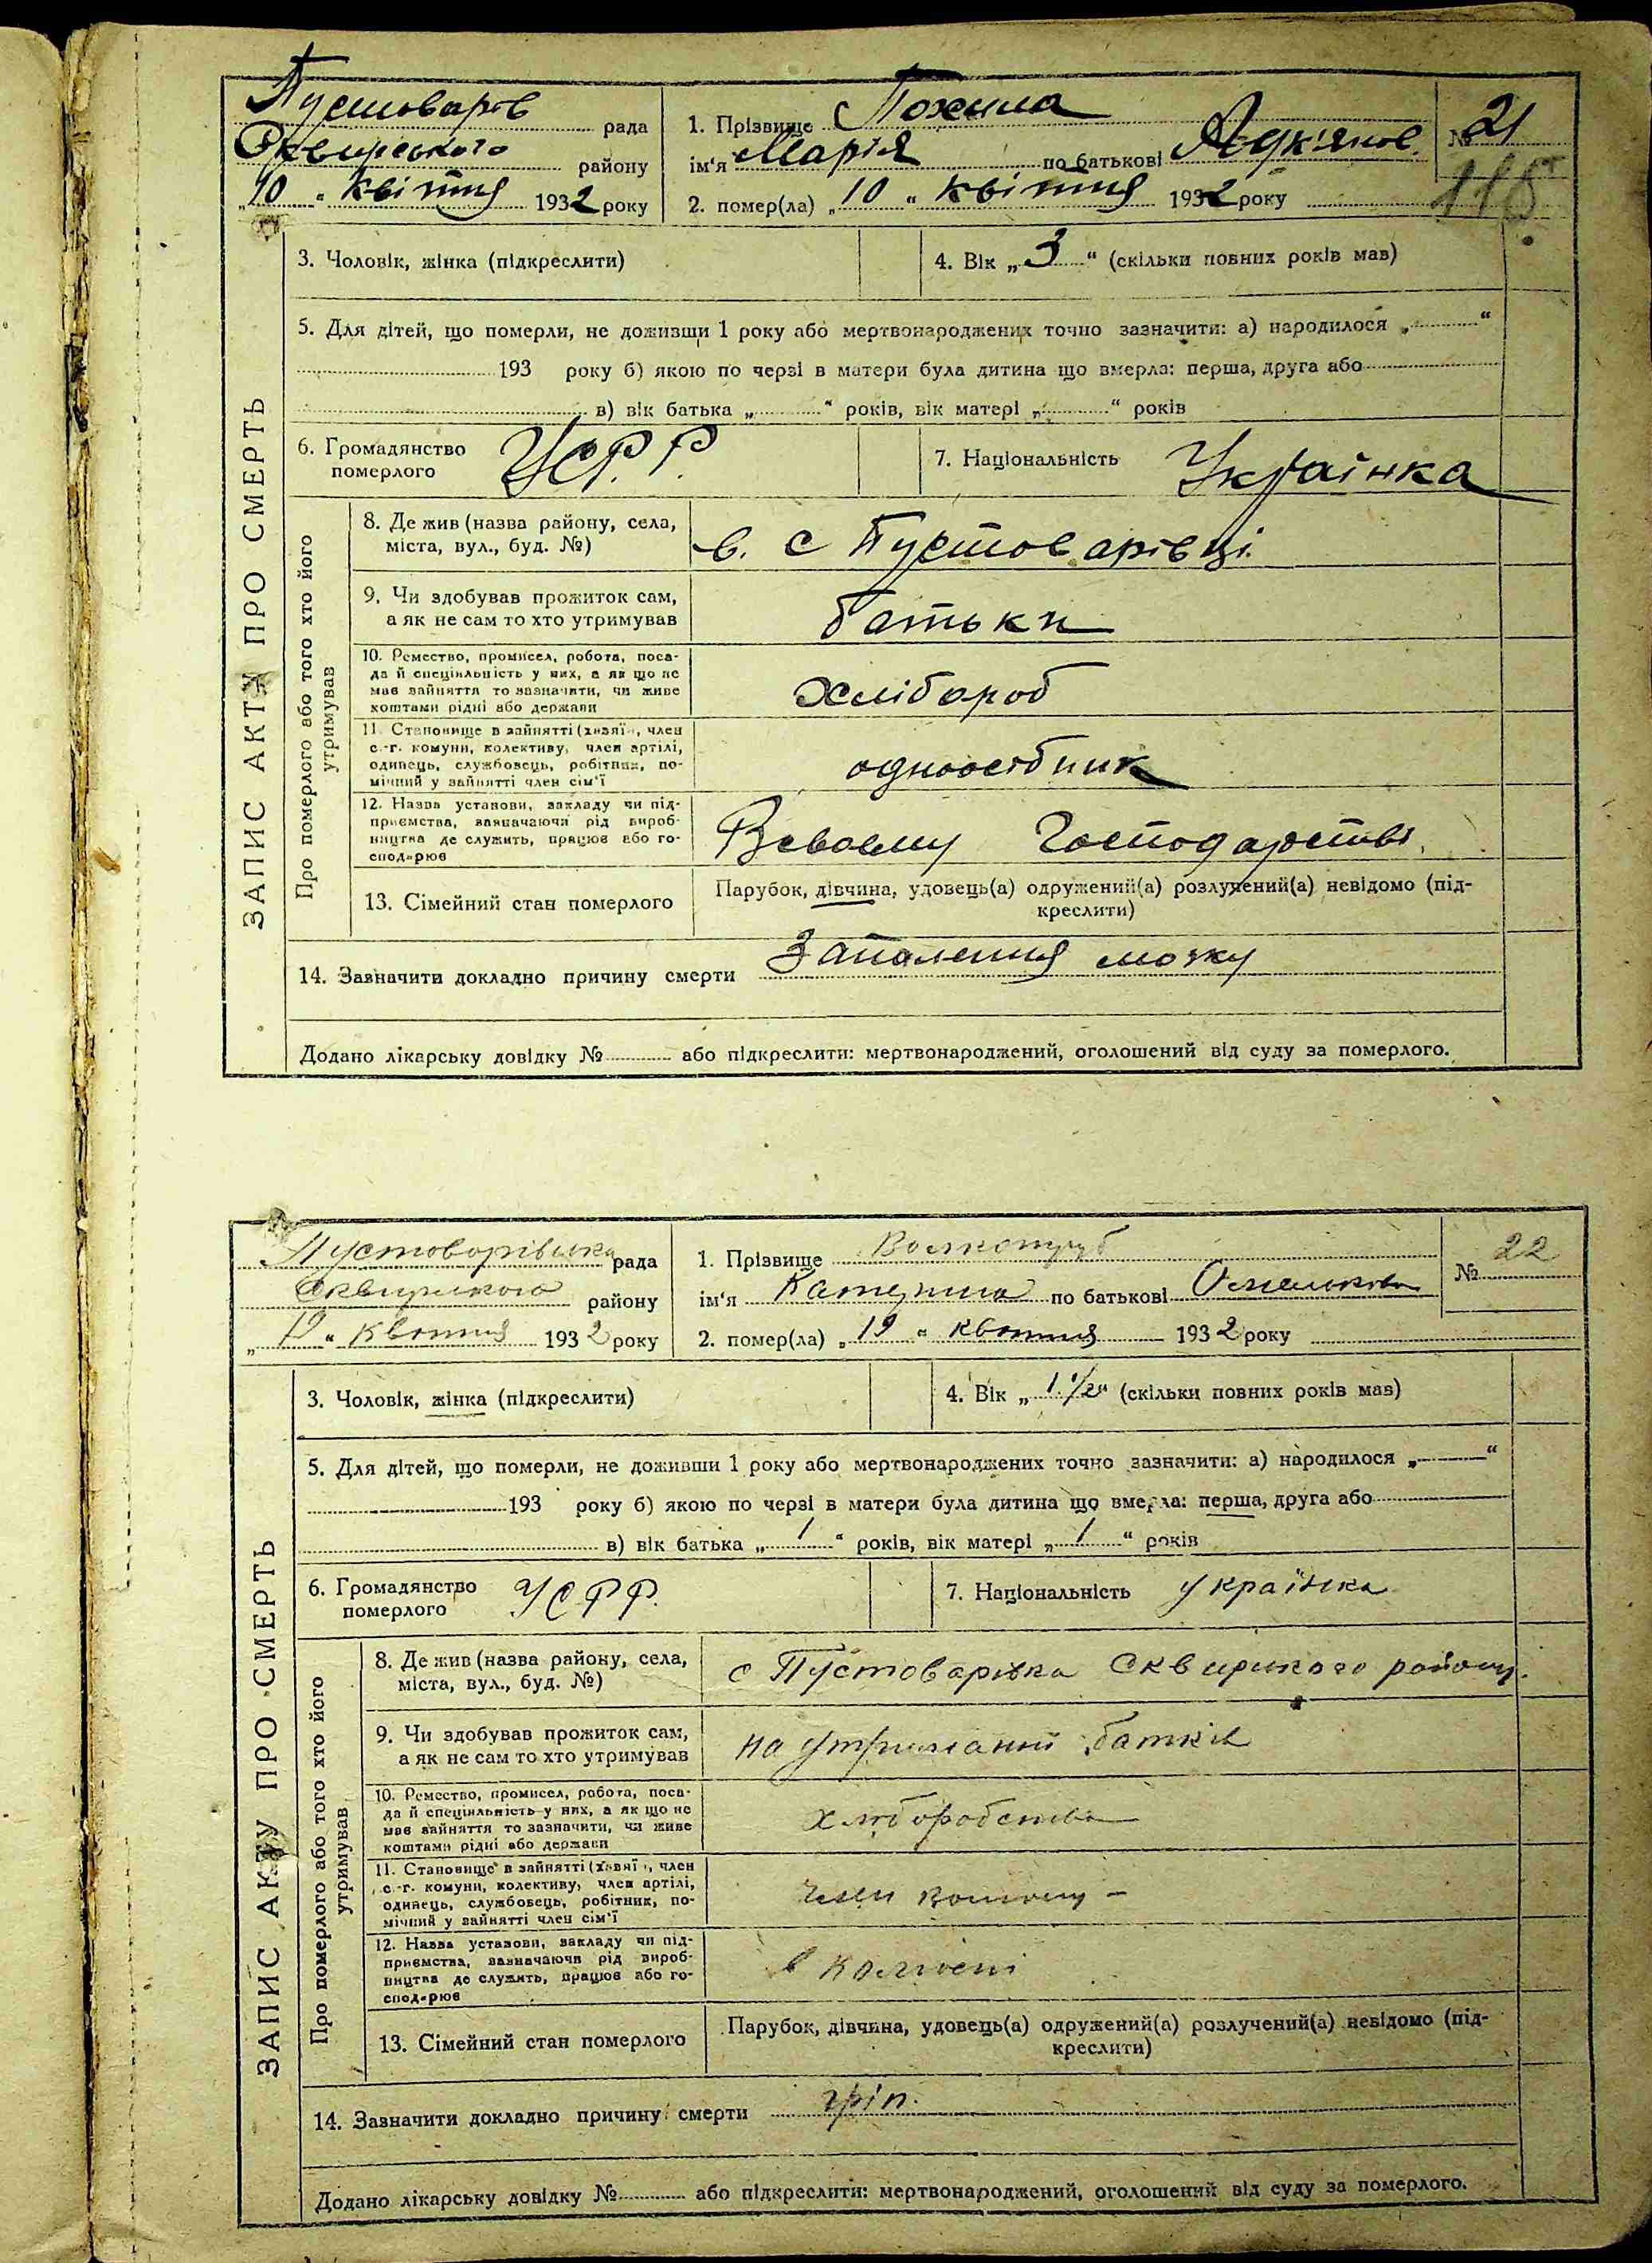 Пустоварів рада
Сквирського району
„10“ квітня 1932 року
1. Прізвище Похила
ім'я Марія по батькові
№ 21
118
2. помер(ла) „10“ квітня 1932 року
ЗАПИС АКТУ ПРО СМЕРТЬ
3. Чоловік, жінка (підкреслити)
4. Вік „3“ (скільки повних років мав)
5. Для дітей, що померли, не доживши 1 року або мертвонароджених точно зазначити: а) народилося „ “
193 року б) якою по черзі в матери була дитина що вмерла: перша, друга або
в) вік батька „ “ років, вік матері „ “ років
6. Громадянство
померлого
УСРР.
7. Національність Українка
Про померлого або того хто його
утримував
8. Де жив (назва району, села,
міста, вул., буд. №)
в. с Пустоварівці
9. Чи здобував прожиток сам,
а як не сам то хто утримував
батьки
10. Ремество, промисел, робота, поса-
да й спеціяльність у них, а як що не
має зайняття то зазначити, чи живе
коштами рідні або держави
хлібороб
11. Становище в зайнятті (хазяїн, член
с.-г. комуни, колективу, член артілі,
одинець, службовець, робітник, по-
мічний у зайнятті член сім'ї
одноосібник
12. Назва установи, закладу чи під-
приємства, зазначаючи рід вироб-
ництва де служить, працює або го-
сподарює
Всвоєму Господарстві
13. Сімейний стан померлого
Парубок, дівчина, удовець(а) одружений(а) розлучений(а) невідомо (під-
креслити)
14. Зазначити докладно причину смерти Запалення мозку
Додано лікарську довідку № або підкреслити: мертвонароджений, оголошений від суду за померлого.
Пустоварівська рада
Сквирського району
„19“ квітня 1932 року
1. Прізвище
ім'я Катерина по батькові Омелькова
№ 22
2. помер(ла) „19“ квітня 1932 року
ЗАПИС АКТУ ПРО СМЕРТЬ
3. Чоловік, жінка (підкреслити)
4. Вік „1 1/2“ (скільки повних років мав)
5. Для дітей, що померли, не доживши 1 року або мертвонароджених точно зазначити: а) народилося „ “
193 року б) якою по черзі в матери була дитина що вмерла: перша, друга або
в) вік батька „/“ років, вік матері „/“ років
6. Громадянство
померлого
УСРР.
7. Національність українка
Про померлого або того хто його
утримував
8. Де жив (назва району, села,
міста, вул., буд. №)
с Пустоварівка Сквирського району.
9. Чи здобував прожиток сам,
а як не сам то хто утримував
на утриманні батьків
10. Ремество, промисел, робота, поса-
да й спеціяльність у них, а як що не
має зайняття то зазначити, чи живе
коштами рідні або держави
хліборобства
11. Становище в зайнятті (хазяїн, член
с.-г. комуни, колективу, член артілі,
одинець, службовець, робітник, по-
мічний у зайнятті член сім'ї
член
12. Назва установи, закладу чи під-
приємства, зазначаючи рід вироб-
ництва де служить, працює або го-
сподарює
в колгоспі
13. Сімейний стан померлого
Парубок, дівчина, удовець(а) одружений(а) розлучений(а) невідомо (під-
креслити)
14. Зазначити докладно причину смерти гріп.
Додано лікарську довідку № або підкреслити: мертвонароджений, оголошений від суду за померлого.